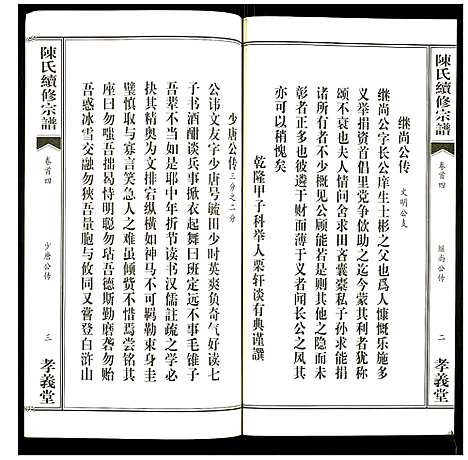 陳氏續修宗譜
卷首四
繼尚公传
二
孝義堂
继尚公传 文明公支
继尚公字长公庠生士彬之父也爲人慷慨乐施多
义举捐资首倡里党争伙助之迄今蒙其利者犹称
颂不衰也夫人情问舍求田吝囊橐私子孙求能捐
诸所有者不少概见公顾能若是得不谓贤欤其所
彰者正多也彼遴于财而薄于义者闻长公之风其
亦可以稍愧矣
乾隆甲子科举人粟轩谈有典谨譔
少唐公传 三分之二分
公讳文友字少唐号毓田少时英爽负奇气好读七
子书酒酣谈兵事掀衣起舞曰班定远不事毛锥子
吾辈不当于中年折节读书汉儒註疏之学必
抉其精奥为文排宕纵横如神马不可羁勒束身圭
璧慎取与寡言笑急人之难虽倾赀不惜焉尝铭其
座曰勿咄吾拙勿恃明聪勿玷吾德斯勤磨砻勿贻
吾惑冰雪交融勿狭吾量胞与攸同又嘗登白浒山
陳氏續修宗譜
卷首四
少唐公传
三
孝義堂